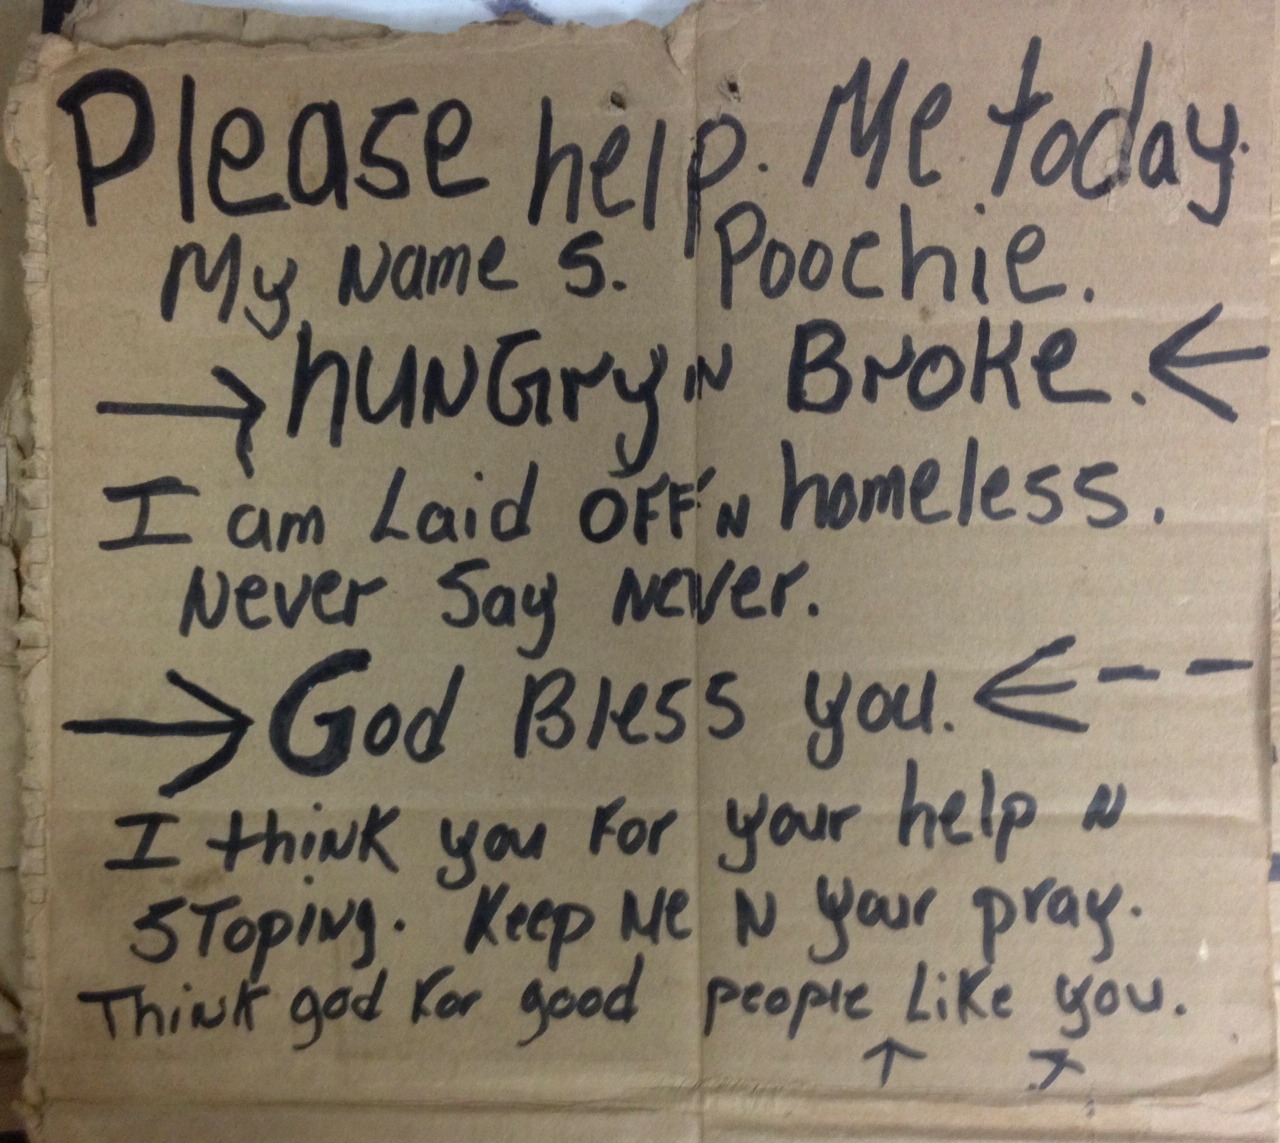 Please help. Me today.
My Name S. Poochie.
hUNGry N Broke.
I am Laid OFF'N homeless.
Never Say Never.
God Bless you.
I think you For your help N
SToping. Keep Me N your pray.
Think god For good people Like you.